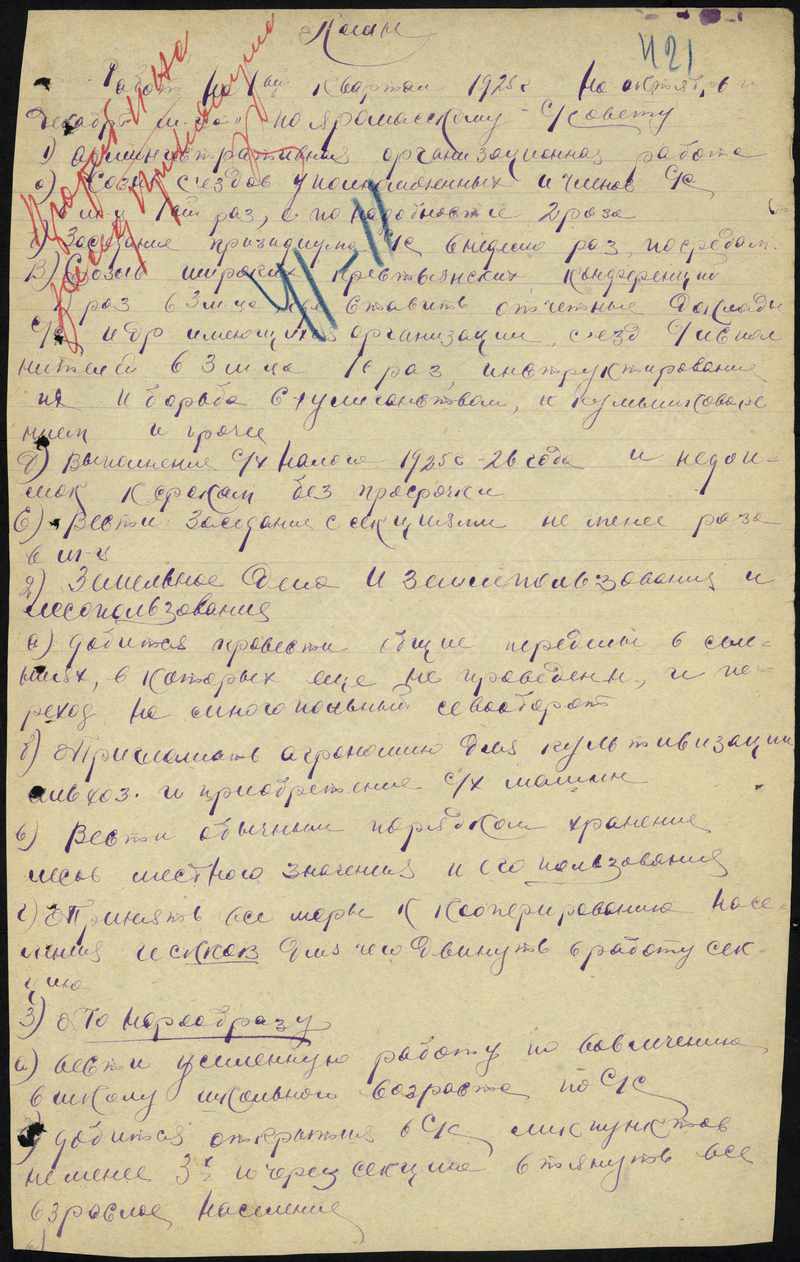 План
421
Работ на 1ый квартал 1925г на октябрь
декабрь м-ца по Сювету
1) административная организационная работа
а) Созыв съездов уполномоченных и членов С/с
1ый раз, а по надобности 2 раза
б) Заседание президиума С/с в неделю раз, по средам.
в) Созыв широких крестьянских конференций
раз в 3 м-ца ставить отчетные доклады
С/с и др имеющихся организации, съезд
нителей в 3 м-ца 1 раз, инструктирование
их и борьба с хулиганством, к
нием и проч
д) Выполнение с/х налога 1925г-26 года и недои-
мок к срокам без просрочки
Е) Вести заседание с секциями не менее раза
в м-ц
2) Земельное дело и землепользования и
лесопользования
а) добится провести общие переделы в селе-
ниях, в которых еще не проведен., и пе-
реход на многопольный севооборот
б) Пригласить агрономию для культивизации
и приобретение с/х машин
в) Вести обычным порядком хранение
лесов местного значения и его пользования
г) Принять все меры к кооперированию насе-
ления и для чего двинуть в работу сек-
цию
3) По нарообразу
а) вести усиленную работу по вовлечению
в школу школьного возраста по С/с
добится открытия в С/с ликпунктов
не менее 3х и через секцию втянуть все
взрослое население
41-11